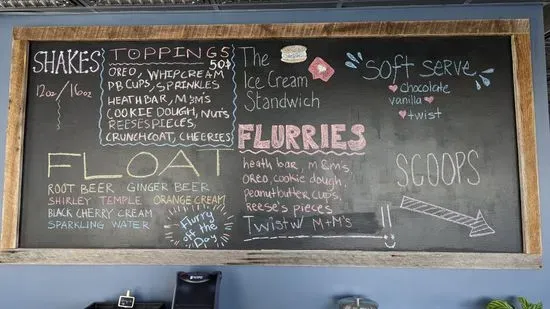 SHAKES
12oz / 16oz
TOPPINGS
50¢
OREO, WHIPCREAM
PB CUPS, SPRINKLES
HEATH BAR, M&MS
COOKIE DOUGH, NUTS
REESES PIECES,
CRUNCH COAT, CHEERIES
The
Ice Cream
Standwich
soft serve
chocolate
vanilla
twist
FLOAT
ROOT BEER GINGER BEER
SHIRLEY TEMPLE ORANGE CREAM
BLACK CHERRY CREAM
SPARKLING WATER
Flurry
of the
Day
FLURRIES
heath bar, m&m's,
oreo, cookie dough,
peanutbutter cups,
reese's pieces
Twist w/ M+M's !!
SCOOPS